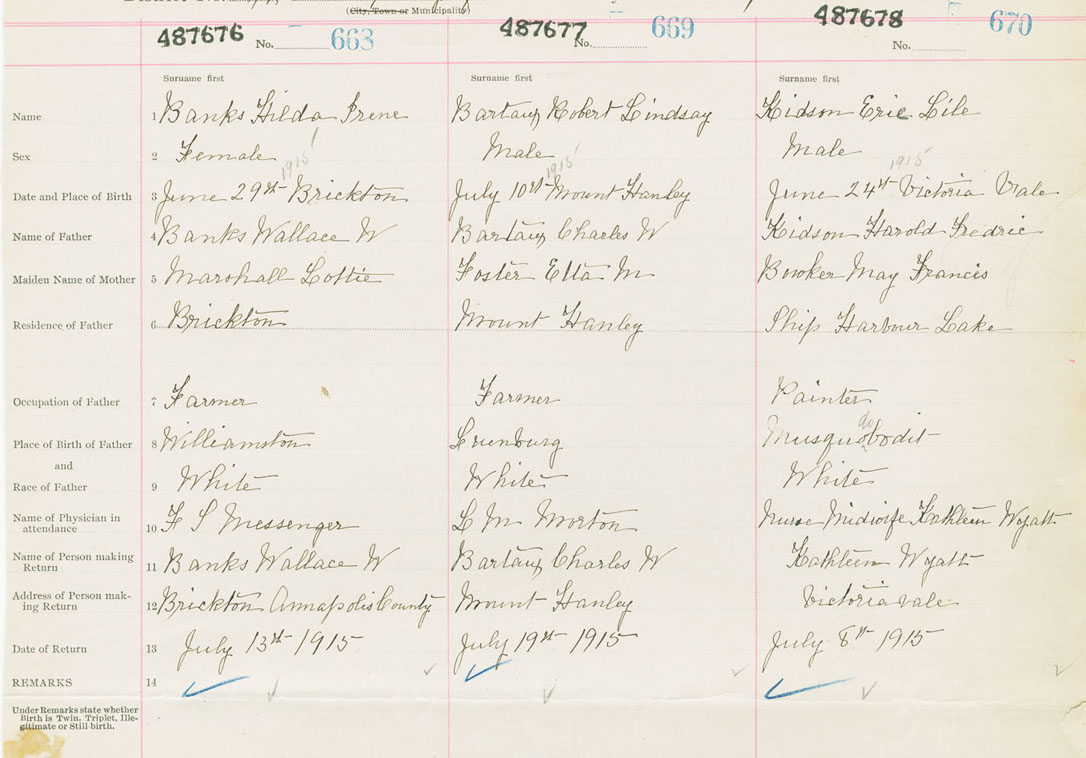 (City, Town or Municipality)
487676 No. 663 487677 No. 669 487678 No. 670
Surname first Surname first Surname first
Name 1 Banks Hilda Irene Bartaux Robert Lindsay Kidson Eric Lile
Sex 2 Female Male Male
1915 1915 1915
Date and Place of Birth 3 June 29th Brickton July 10th Mount Hanley June 24th Victoria Vale
Name of Father 4 Banks Wallace W Bartaux Charles W Kidson Harold Fredric
Maiden Name of Mother 5 Marshall Lottie Foster Etta M Bowker May Francis
Residence of Father 6 Brickton Mount Hanley Ship Harbour Lake
Occupation of Father 7 Farmer Farmer Painter
Place of Birth of Father 8 Williamston Lunenburg Musquodobodit
and
Race of Father 9 White White White
Name of Physician in attendance 10 F S Messenger L M Morton Nurse Midwife Kathleen Wyatt
Name of Person making Return 11 Banks Wallace W Bartaux Charles W Kathleen Wyatt
Address of Person making Return 12 Brickton Annapolis County Mount Hanley Victoria vale
Date of Return 13 July 13th 1915 July 19th 1915 July 8th 1915
REMARKS 14
Under Remarks state whether
Birth is Twin, Triplet, Ille-
gitimate or Still birth.